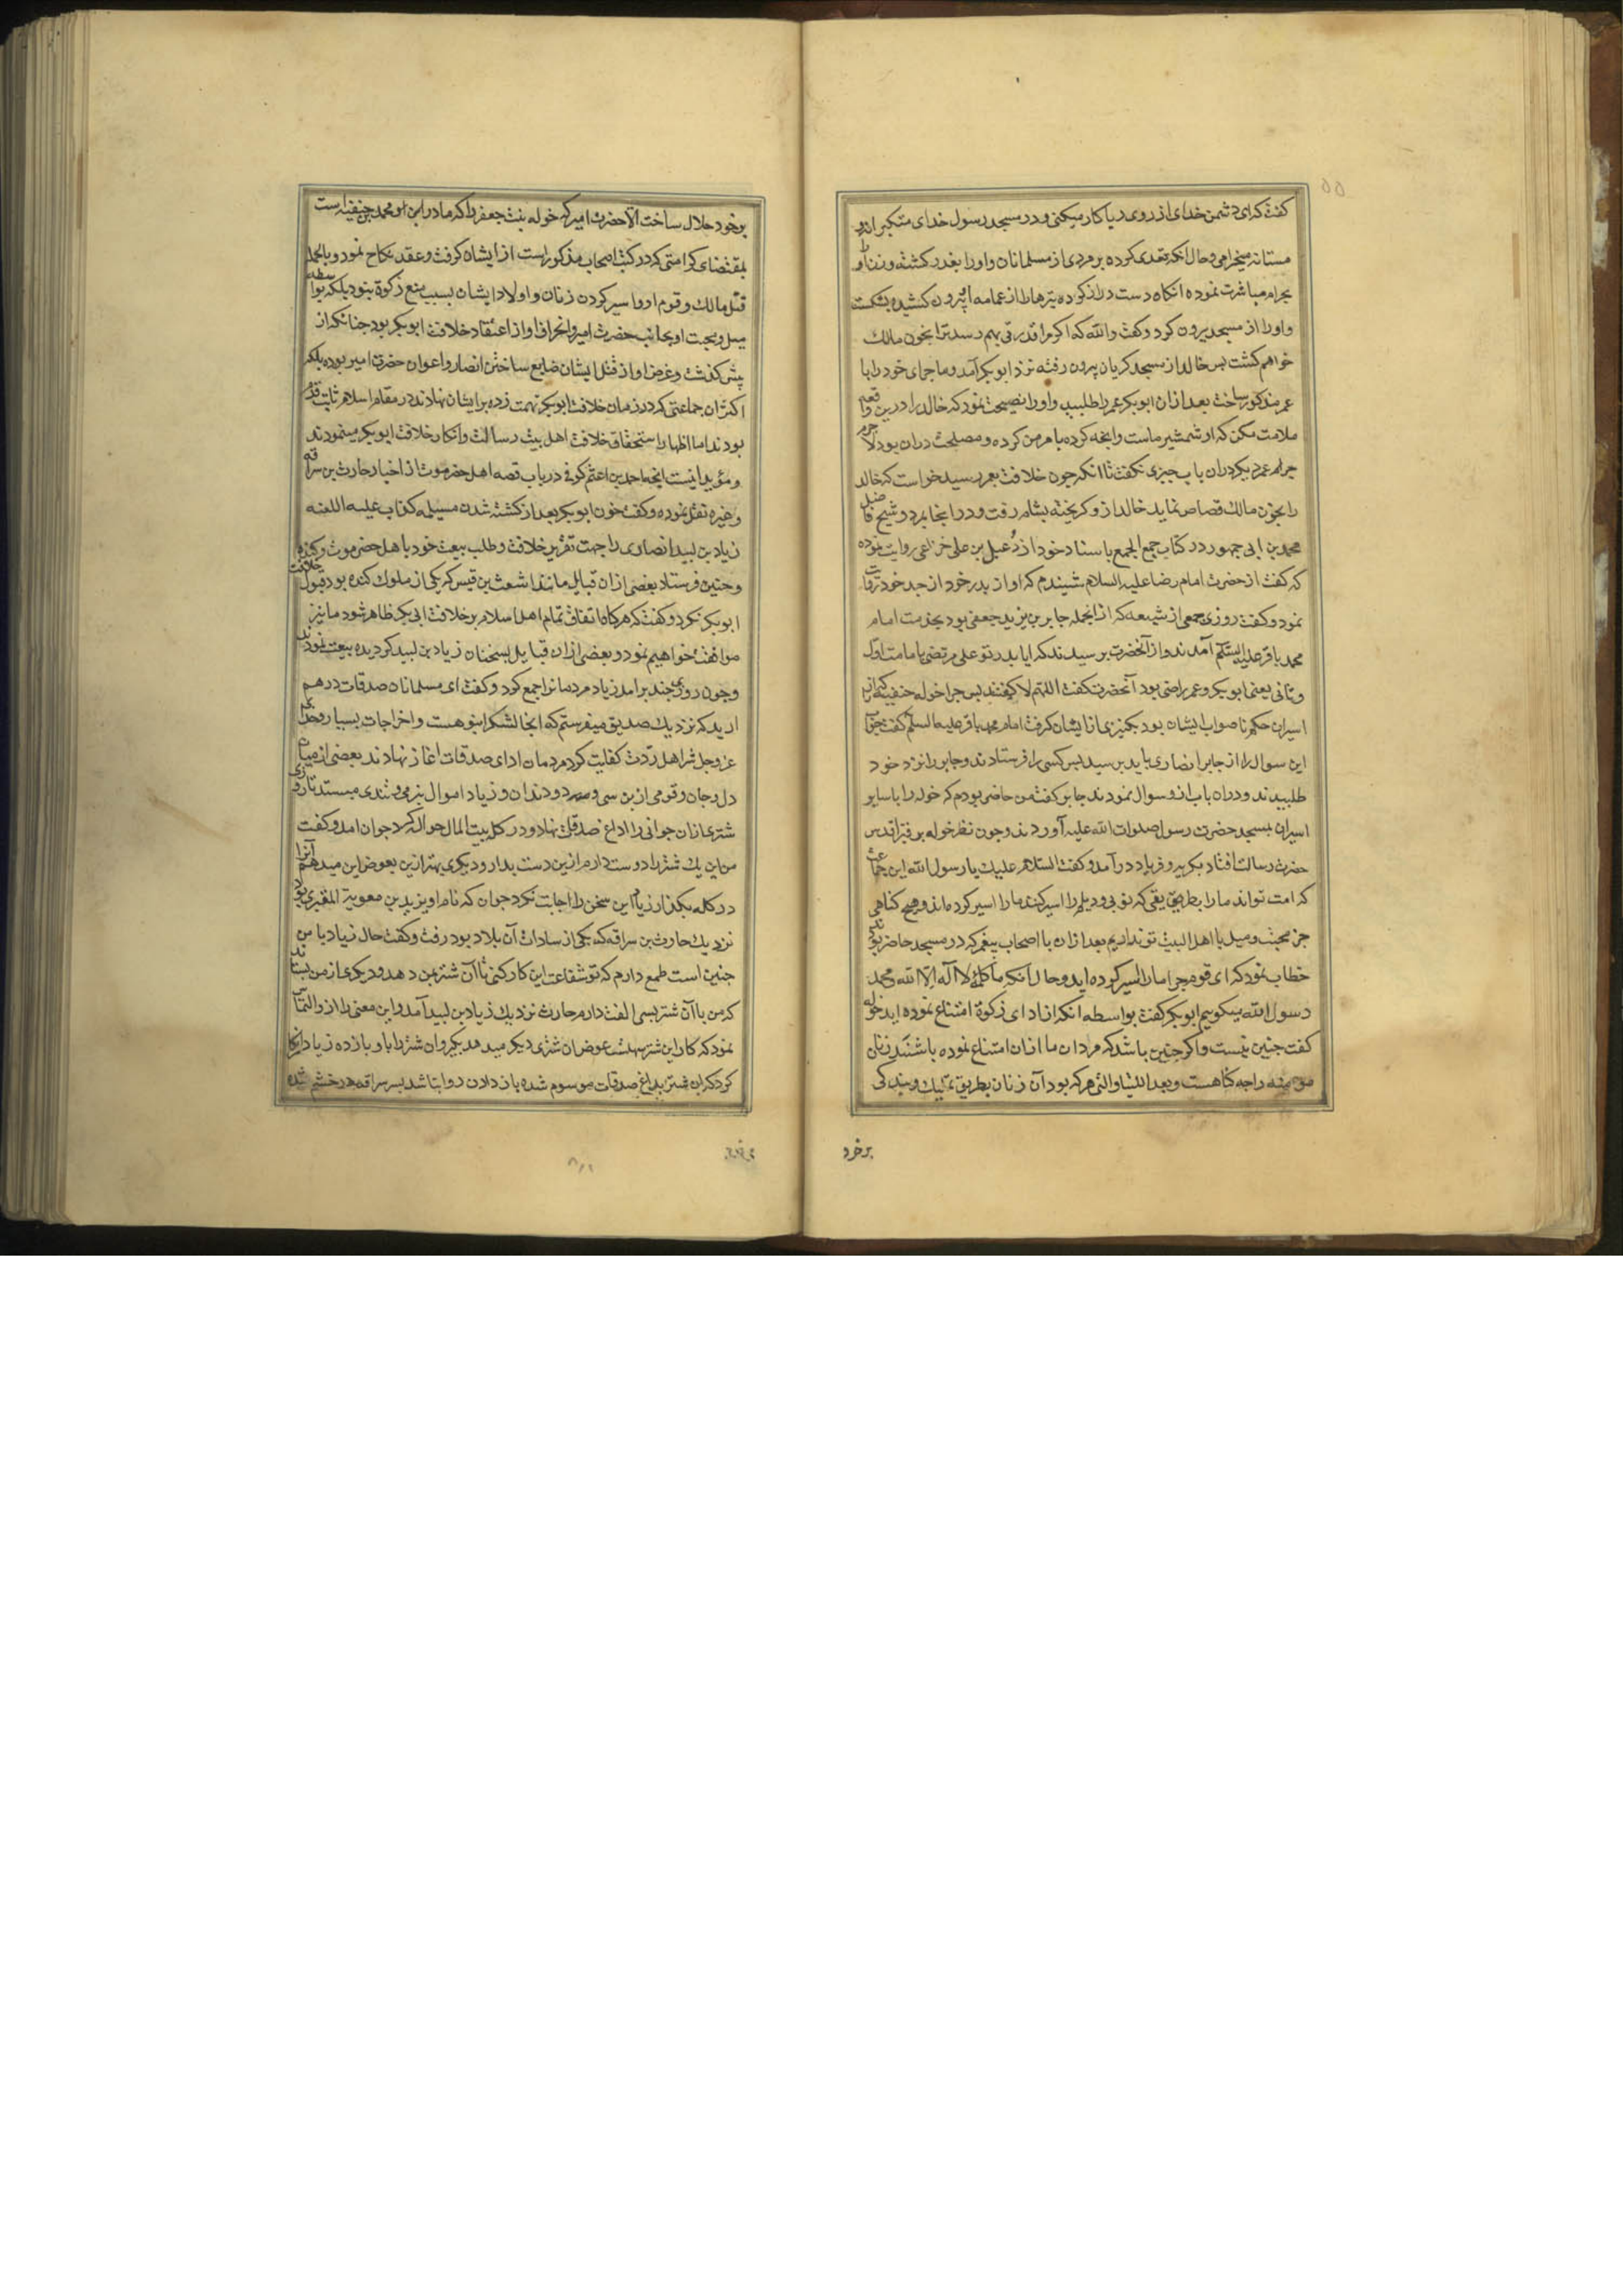 ۵۵
کفت که ای دشمن خدای از روی ریا کار میکنی و در مسجد رسول خدای متکبرانه و
مستانه میخرامی و حال انکه تعدی کرده بر مردی از مسلمانان و او را بغدر کشته و با زن او
بحرام مباشرت نموده انکاه دست دراز کرده تیرها را از عمامه او بیرون کشیده بشکست
و او را از مسجد بیرون کرد و کفت والله که اکر مرا قدرتی بهم رسد ترا بخون مالک
خواهم کشت پس خالد از مسجد کریان بیرون رفته نزد ابوبکر آمد و ماجرای خود را با
عمر مذکور ساخت بعد ازان ابوبکر عمر را طلبید و او را نصیحت نمود که خالد را درین واقعه
ملامت مکن که او شمشیر ماست و انچه کرده بامر من کرده و مصلحت دران بود لاجرم
عمر دیکر دران باب چیزی نکفت تا انکه چون خلافت بعمر رسید خواست که خالد
را بخون مالک قصاص نماید خالد ازو کریخته بشام رفت و در انجا بمرد و شیخ فاضل
محمد بن ابی جمهور در کتاب جمع الجمع باسناد خود از دعبل بن علی خزاعی روایت نموده
که کفت از حضرت امام رضا علیه السلام شنیدم که او از پدر خود از جد خود روایت
نمود و کفت روزی جمعی از شیعه که از انجمله جابر بن یزید جعفی بود بخدمت امام
محمد باقر علیه السلم آمدند و از آنحضرت پرسیدند که ایا پدر تو علی مرتضی بامامت اول
و ثانی یعنی ابوبکر و عمر راضی بود آنحضرت کفت اللهم لا کفتند پس چرا خوله حنفیه که از
اسیران حکم ناصواب ایشان بود بکنیزی از ایشان کرفت امام محمد باقر علیه السلم کفت جواب
این سوال را از جابر انصاری باید پرسید پس کسی را فرستادند و جابر را نزد خود
طلبیدند و دران باب ازو سوال نمودند جابر کفت من حاضر بودم که خوله را با سایر
اسیران بمسجد حضرت رسول صلوات الله علیه آوردند و چون نظر خوله بر قبر اقدس
حضرت رسالت افتاد بکریه و فریاد در آمد و کفت السلام علیک یا رسول الله این جماعت
که امت تواند ما را بطریقی که نوبی و دیلم را اسیر کنند ما را اسیر کرده اند و هیچ کناهی
جز محبت و میل با اهل البیت تو نداریم بعد ازان با اصحاب پیغمبر که در مسجد حاضر بودند
خطاب نمود که ای قوم چرا ما را اسیر کرده اید و حال آنکه ما کلمه لا آله الا الله و محمد
رسول الله میکوییم ابوبکر کفت بواسطه انکه از ادای زکوة امتناع نموده اید خوله
کفت چنین نیست و اکر چنین باشد که مردان ما ازان امتناع نموده باشند زنان
مومنه را چه کناهست و بعد اللتیا و التی هر که بود آن زنان بطریق تملیک و بندکی
برخود
برخود حلال ساخت الا حضرت امیر که خوله بنت جعفر را که مادر ابن او محمد حنفیه است
بمقتضای کرامتی که در کتب اصحاب مذکور است از ایشان کرفت و عقد نکاح نمود و بالجمله
قتل مالک و قوم او و اسیر کردن زنان و اولاد ایشان بسبب منع زکوة نبود بلکه بواسطه
میل و محبت او بجانب حضرت امیر و انحراف او از اعتقاد خلافت ابوبکر بود چنانکه از
پیش کذشت و غرض او از قتل ایشان ضایع ساختن انصار و اعوان حضرت امیر بوده بلکه
اکثر ان جماعتی که در زمان خلافت ابوبکر تهمت زده بر ایشان نهادند در مقام اسلام ثابت قدم
بودند اما اظهار استحقاق خلافت اهل بیت رسالت و انکار خلافت ابوبکر مینمودند
و مؤید اینست انچه احمد بن اعثم کوفی در باب قصه اهل حضرموت از اخبار حارث بن سراقه
و غیره نقل نموده و کفت چون ابوبکر بعد از کشته شدن مسیلمه کذاب علیه اللعنه
زیاد بن لبید انصاری را جهت تقریر خلافت و طلب بیعت خود باهل حضرموت و کنده
و چنین فرستاد بعضی ازان قبایل مانند اشعث بن قیس که یکی از ملوک کنده بود قبول خلافت
ابوبکر نکرد و کفت که هرکاه اتفاق تمام اهل اسلام بر خلافت ابی بکر ظاهر شود ما نیز
موافقت خواهیم نمود و بعضی ازان قبایل بسخنان زیاد بن لبید کردیده بیعت نمودند
و چون روزی چند برامد زیاد مردمانرا جمع کرد و کفت ای مسلمانان صدقات در هم
ارید که نزدیک صدیق میفرستم که انجا لشکر انبوهست و اخراجات بسیار و خدای
عز و جل شر اهل ردت کفایت کرد مردمان ادای صدقات اغاز نهادند بعضی از میان
دل و جان و قومی از بن سی و دو دندان و زیاد اموال بنرمی و تندی میستد تا روزی
شتری ازان جوانی را داغ صدقات نهاد و در کله بیت المال حواله کرد جوان امد و کفت
من این یک شتر را دوست دارم ازین دست بدار و دیکری بهتر ازین بعوض این میدهم آنرا
در کله بکذار زیاد این سخن را اجابت نکرد جوان که نام او یزید بن معویة القشیری بود
نزدیک حارث بن سراقه که یکی از سادات آن بلاد بود رفت و کفت حال زیاد با من
چنین است طمع دارم که تو شفاعت این کار کنی تا آن شتر بمن دهد و دیکری از من بستاند
که من با آن شتر بسی الفت دارم حارث نزدیک زیاد بن لبید آمد و این معنی را ازو التماس
نمود که کار این شتر سهلست عوض ان شتری دیکر میدهد بکیر و ان شتر را باو باز ده زیاد انکار
کرد که ان شتر بداغ صدقات موسوم شده باز دادن روا نباشد پسر سراقه در خشم شد